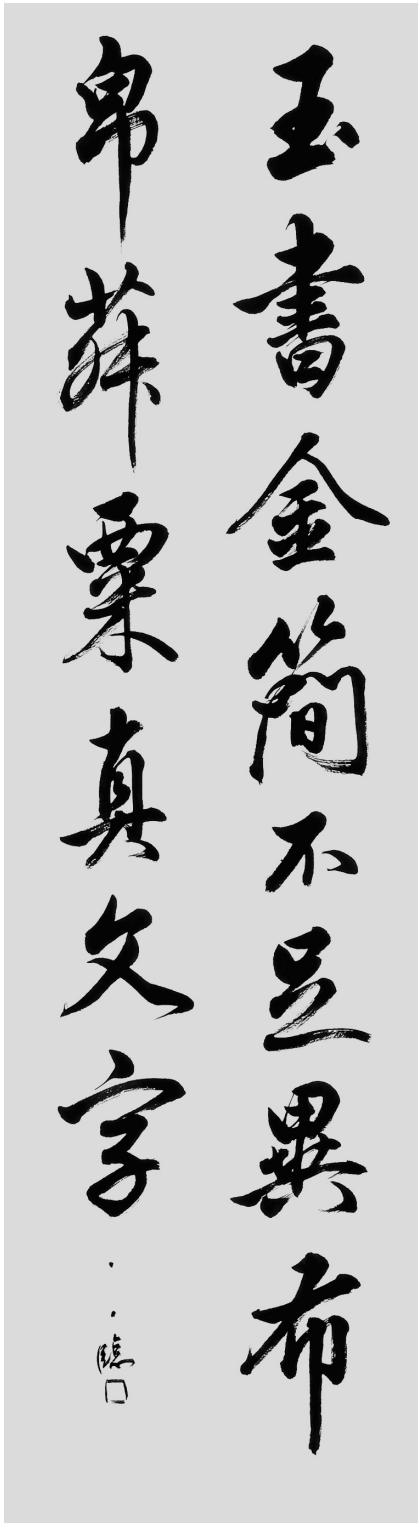 玉書金簡不足異布
帛菽粟真文字
臨